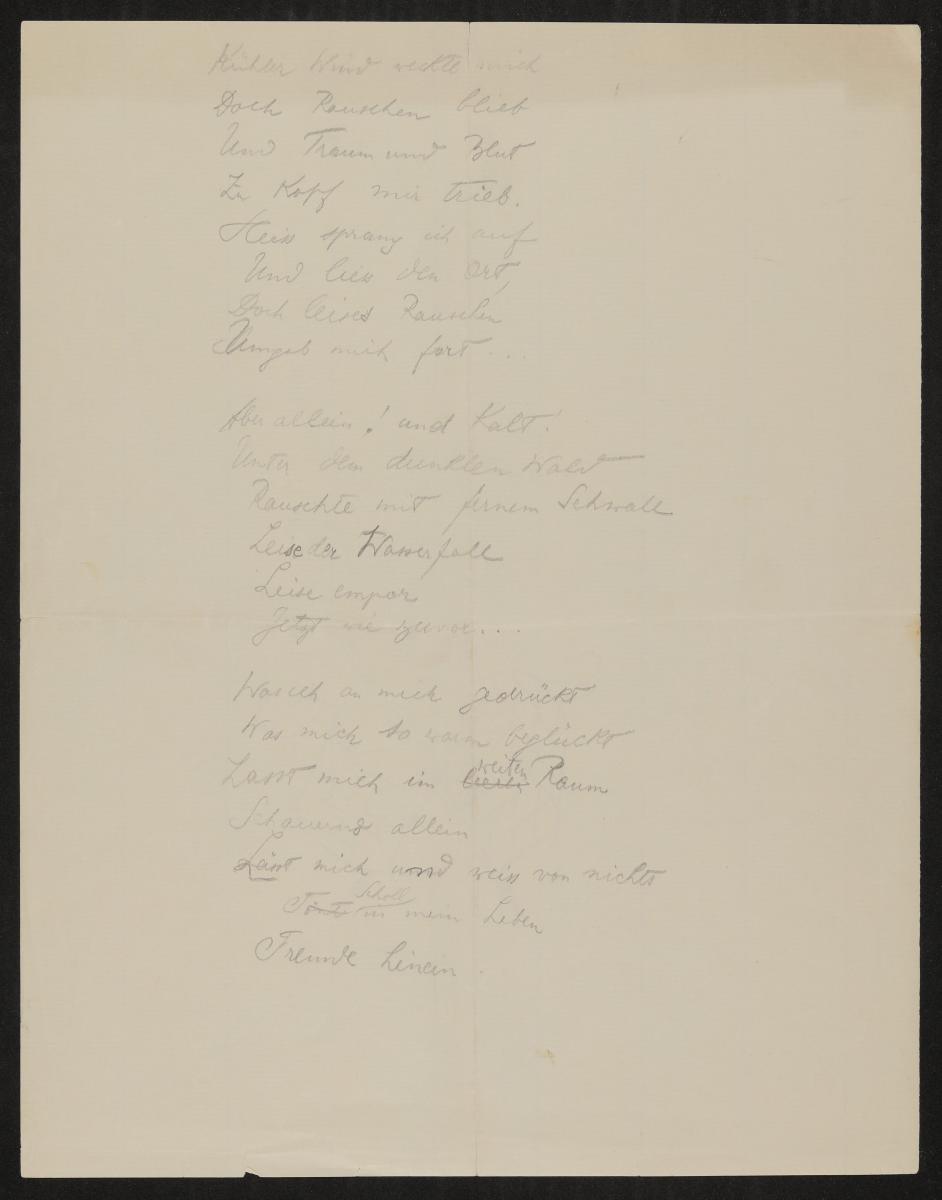 Kühler Wind weckte mich
Doch Rauschen blieb
Und Traum und Blut
Zu Kopf mir trieb.
Heiss sprang ich auf
Und liess den Ort,
Doch leises Rauschen
Umgab mich fort...
Aber allein! und Kalt!
Unter dem dunklen Wald
Rauschte mit fernem Schwall
Leise der Wasserfall
Leise empor
Jetzt wie zuvor....
Was ich an mich gedrückt
Was mich so warm beglückt
Lasst mich im weiten Raum
Schauernd allein
Lässt mich und weiss von nichts
Tönt Scholl in mein Leben
Freunde hinein.